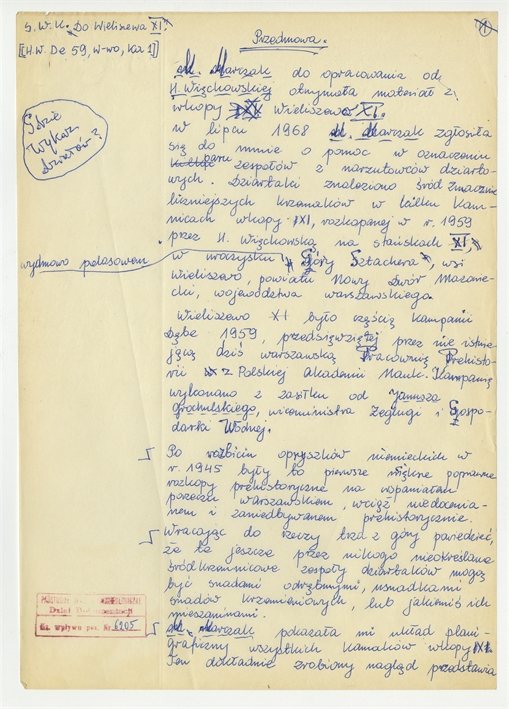 S. W. K. Do Wieliszewa XI.
[[H.W. De 59, W-wo, Ka 1]]
1
Przedmowa.
Gdzie
wykaz
działów?
M. Marzak do opracowania od
H. Więckowskiej otrzymała materiał z
wkopy Wieliszewo XI.
W lipcu 1968 M. Marzak zgłosiła
się do mnie o pomoc w oznaczeniu
paru zespołów z narzutowców działo-
wych. Działaki znaleziono śród znacznie
liczniejszych krzemaków w kilku Kam-
nicach wkopy XI, rozkopanej w r. 1959
przez H. Więckowską na stańskach XI,
wydmowo polasowem
w uroczysku Góry Sztachera, wsi
Wieliszewo, powiatu Nowy Dwór Mazowie-
cki, województwa warszawskiego.
Wieliszewo XI było częścią Kampanii
Dębe 1959, przedsięwziętej przez nie istnie-
jącą dziś warszawską Pracownię Prehisto-
rii Polskiej Akademii Nauk. Kampanię
wykonano z zasiłku od Janusza
Grochulskiego, wiceministra Żeglugi i Gospo-
darki Wodnej.
Po rozbiciu opryszków niemieckich w
r. 1945 były to pierwsze większe poprawne
rozkopy prehistoryczne na wspaniałem
porzeczu warszawskiem, wciąż niedocenia-
nem i zaniedbywanem prehistorycznie.
Wracając do rzeczy trza z góry powiedzieć,
że te jeszcze przez nikogo nieokreślane
śródkrzemnicowe zespoły działaków mogą
być snadami odrębnymi, usnadkami
snadów krzemieniowych, lub jakiemiś ich
mieszaninami.
M. Marzak pokazała mi układ plani-
graficzny wszystkich Kamaków wkopy XI.
Ten dokładnie zrobiony nagląd przedstawia
Dział Dokumentacji
Ks. wpływu poz. Nr 6205